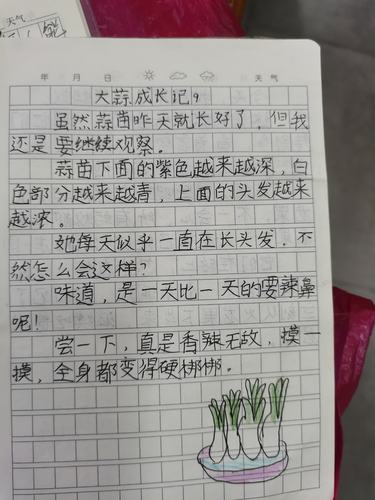 天气
年 月 日 天气
大蒜成长记9
虽然蒜苗昨天就长好了，但我
还是要继续观察。
蒜苗下面的紫色越来越深，白
色部分越来越青，上面的头发越来
越浓。
她每天似乎一直在长头发，不
然怎么会这样？
味道，是一天比一天的要辣鼻
呢！
尝一下，真是香辣无敌，摸一
摸，全身都变得硬梆梆。